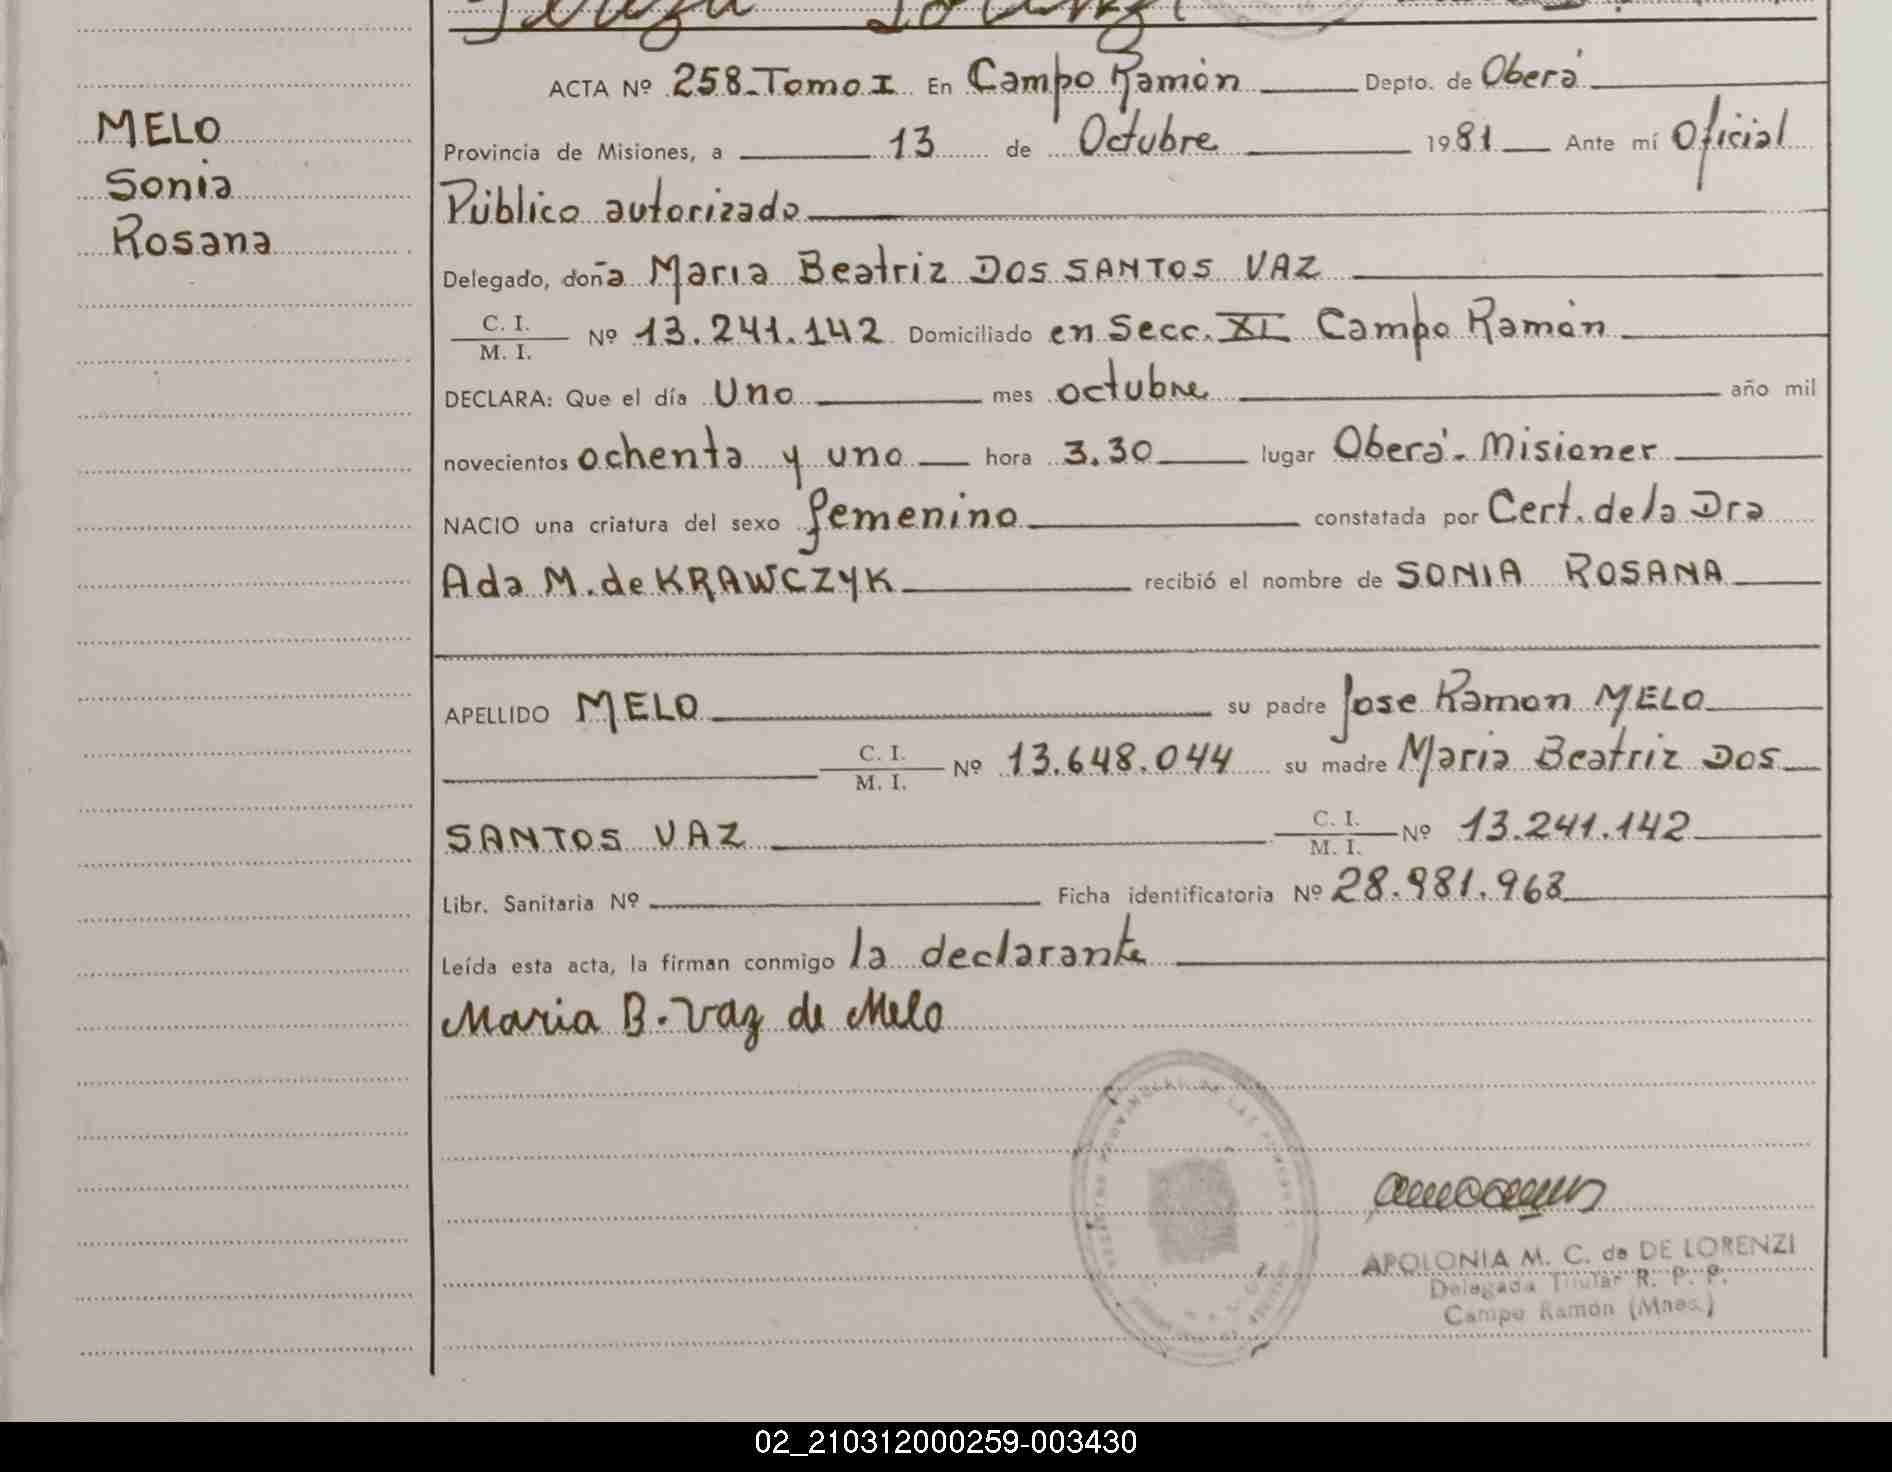 MELO
Sonia
Rosana
ACTA Nº 258-Tomo I En Campo Ramón Depto. de Oberá
Provincia de Misiones, a 13 de Octubre 1981 Ante mí Oficial
Público autorizado
Delegado, doña Maria Beatriz DOS SANTOS VAZ
C. I.
M. I.
Nº 13.241.142 Domiciliado en Secc. XI Campo Ramón
DECLARA: Que el día Uno mes octubre año mil
novecientos ochenta y uno hora 3.30 lugar Oberá - Misiones
NACIO una criatura del sexo femenino constatada por Cert. de la Dra
Ada M. de KRAWCZYK recibió el nombre de SONIA ROSANA
APELLIDO MELO su padre Jose Ramon MELO
C. I.
M. I.
Nº 13.648.044 su madre Maria Beatriz DOS
SANTOS VAZ
C. I.
M. I.
Nº 13.241.142
Libr. Sanitaria Nº Ficha identificatoria Nº 28.981.963
Leída esta acta, la firman conmigo la declarante
Maria B. Vaz de Melo
APOLONIA M. C. de DE LORENZI
Delegada Titular R. P. P.
Campo Ramón (Mnes.)
02_210312000259-003430